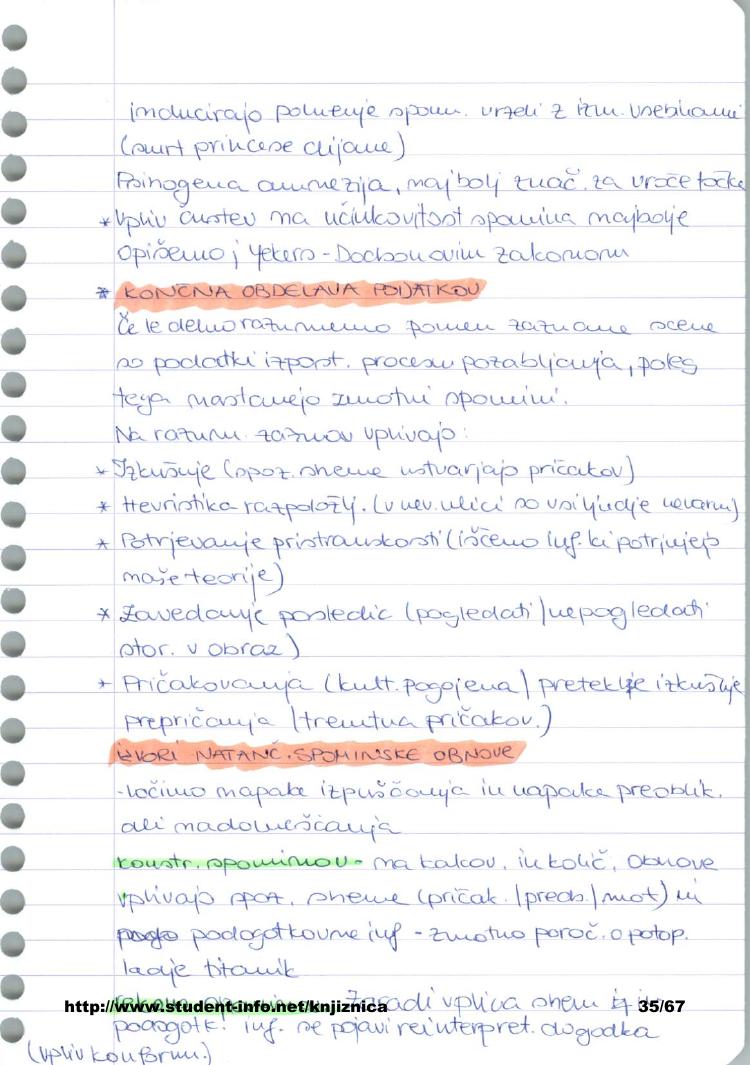 inducirajo polnenje spom. vrzeli z izm. vsebinami
(smrt princese dijane)
Psihogena amnezija, najbolj znač. za vroče točke
* Vpliv čustev na učinkovitost spomina najbolje
opišemo j Yekers - Dochsonovim zakonom
* KONČNA OBDELAVA PODATKOV
Če le delno razumemo pomen zaznane scene
so podatki izpost. procesu pozabljanja, poleg
tega nastanejo zmotni spomini.
Na razum. zaznav vplivajo:
* Izkušnje (spoz. sheme ustvarjajo pričakov)
* Hevristika razpolož. (v nev. ulici so vsi ljudje nevarni)
* Potrjevanje pristranskosti (iščemo inf. ki potrjujejo
naše teorije)
* Zavedanje posledic (pogledati / nepogledati
stor. v obraz)
* Pričakovanja (kult. pogojena / pretekle izkušnje
prepričanja / trenutna pričakov.)
IZVORI NATANČ. SPOMINSKE OBNOVE
- ločimo napake izpuščanja in napake preoblik.
ali nadomeščanja
konstr. spominov - na kakov. in količ. obnove
vplivajo spoz. sheme (pričak. / preds. / mot) in
podogotkovne inf - zmotno poroč. o potop.
ladje titanik
zaradi vpliva shem in
http://www.student-info.net/knjiznica 35/67
podogotk. inf. se pojavi reinterpret. dogodka
(vpliv konform.)